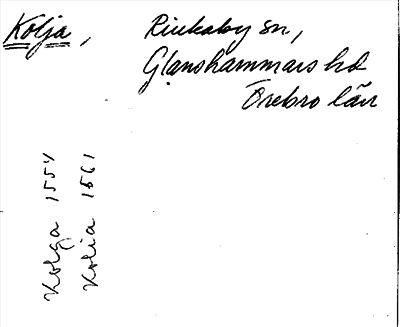 Kolja, Rinkaby sn,
Glanshammars hd
Örebro län
Kolga 1554
Kolia 1561